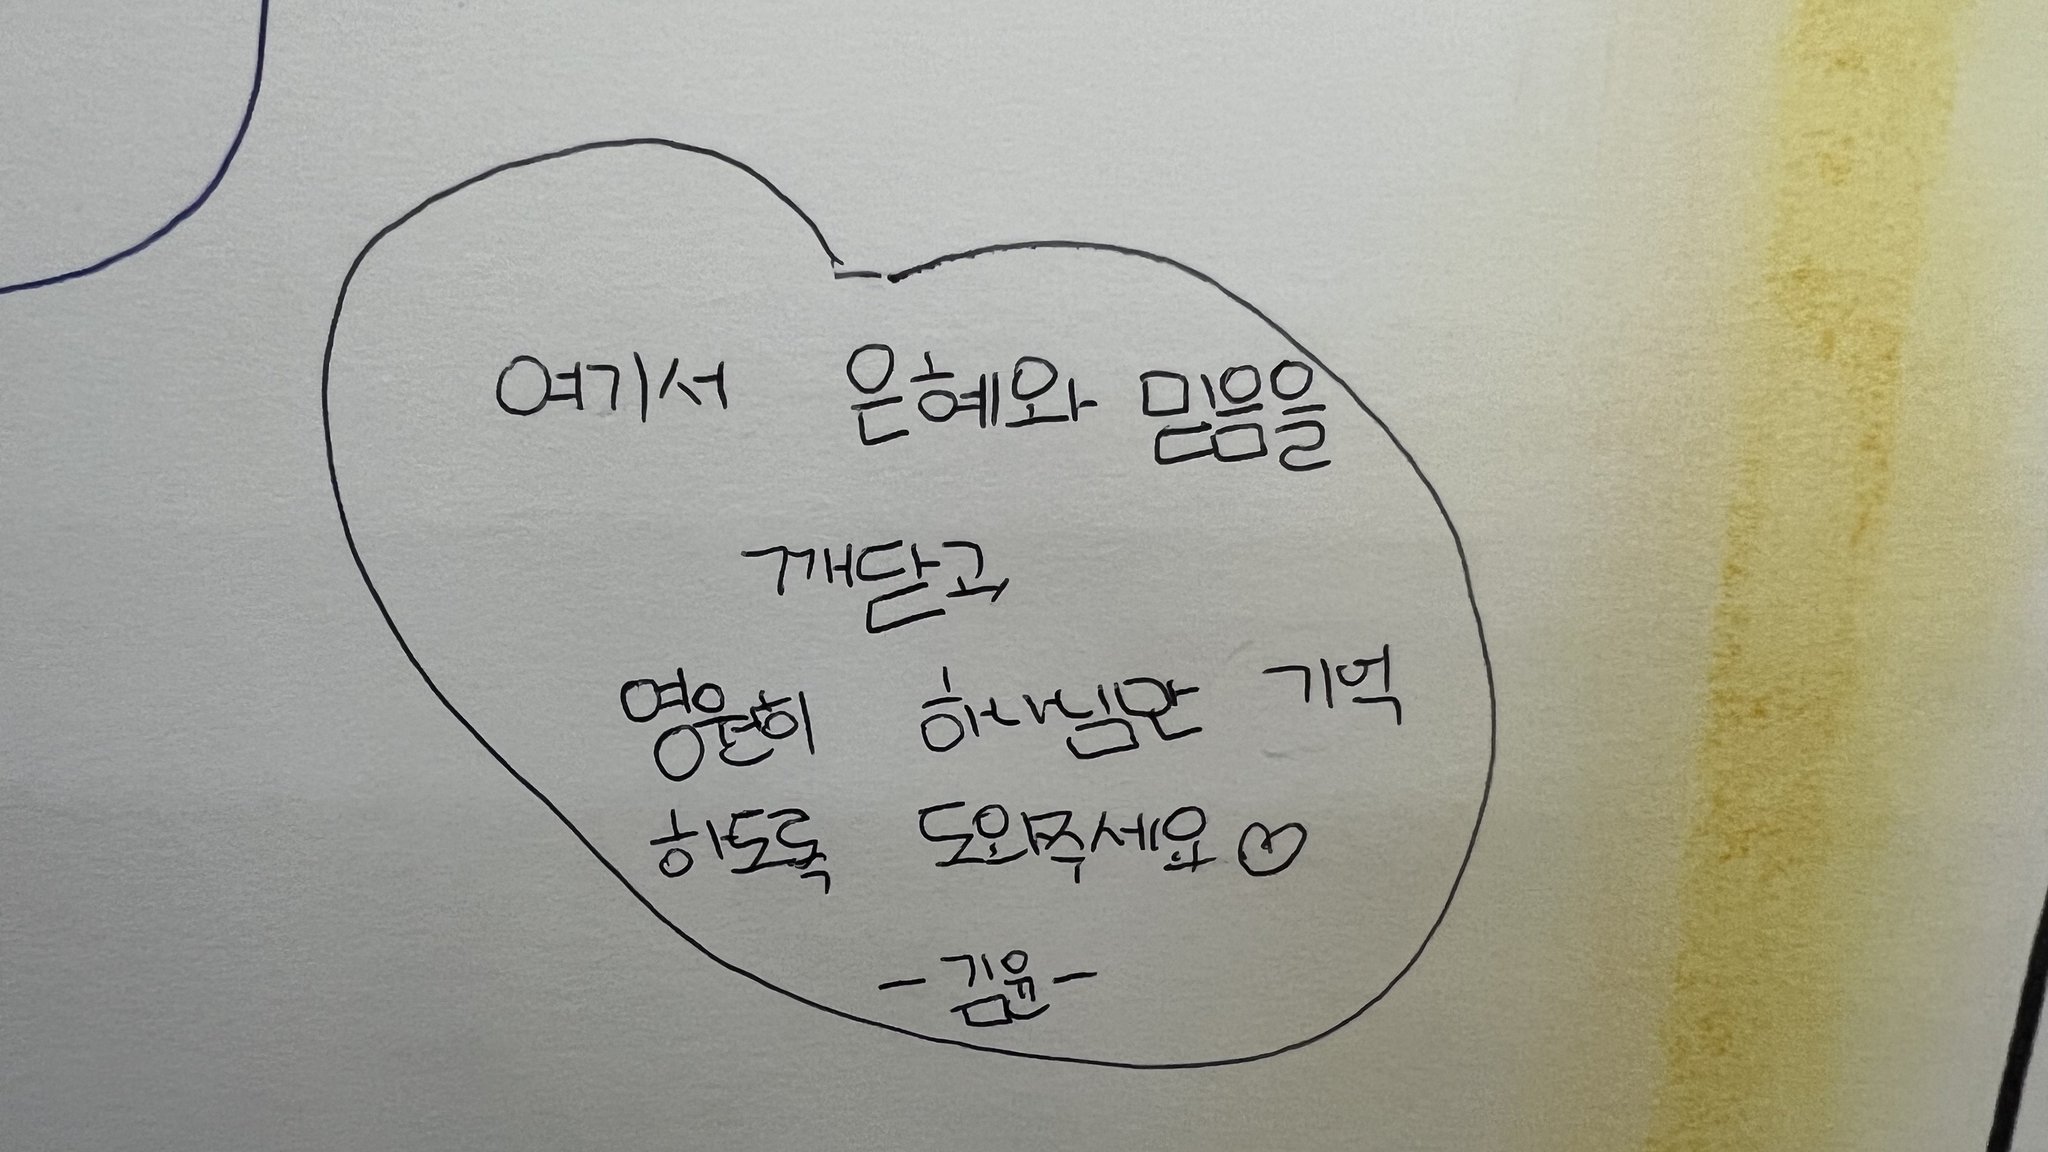 여기서 은혜와 믿음을
깨닫고
영원히 하나님만 기억
하도록 도와주세요♡
-김윤-